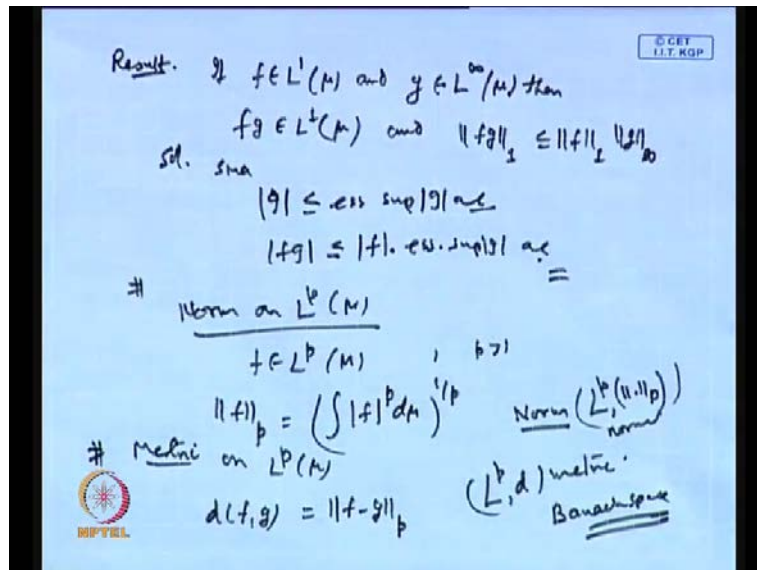 © CET
I.I.T. KGP
Result. If f ∈ L¹(μ) and g ∈ L^∞(μ) then
fg ∈ L¹(μ) and ‖fg‖₁ ≤ ‖f‖₁ ‖g‖∞
Sol. Since
|g| ≤ ess sup|g| a.e
|fg| ≤ |f|. ess. sup|g| a.e.
# Norm on L^p(μ)
f ∈ L^p(μ) , p>1
‖f‖_p = (∫|f|^p dμ)^{1/p} Norm (L^p, (‖.‖_p))
norm
# Metric on L^p(μ)
(L^p, d) metric.
d(f,g) = ‖f-g‖_p Banach space
NPTEL